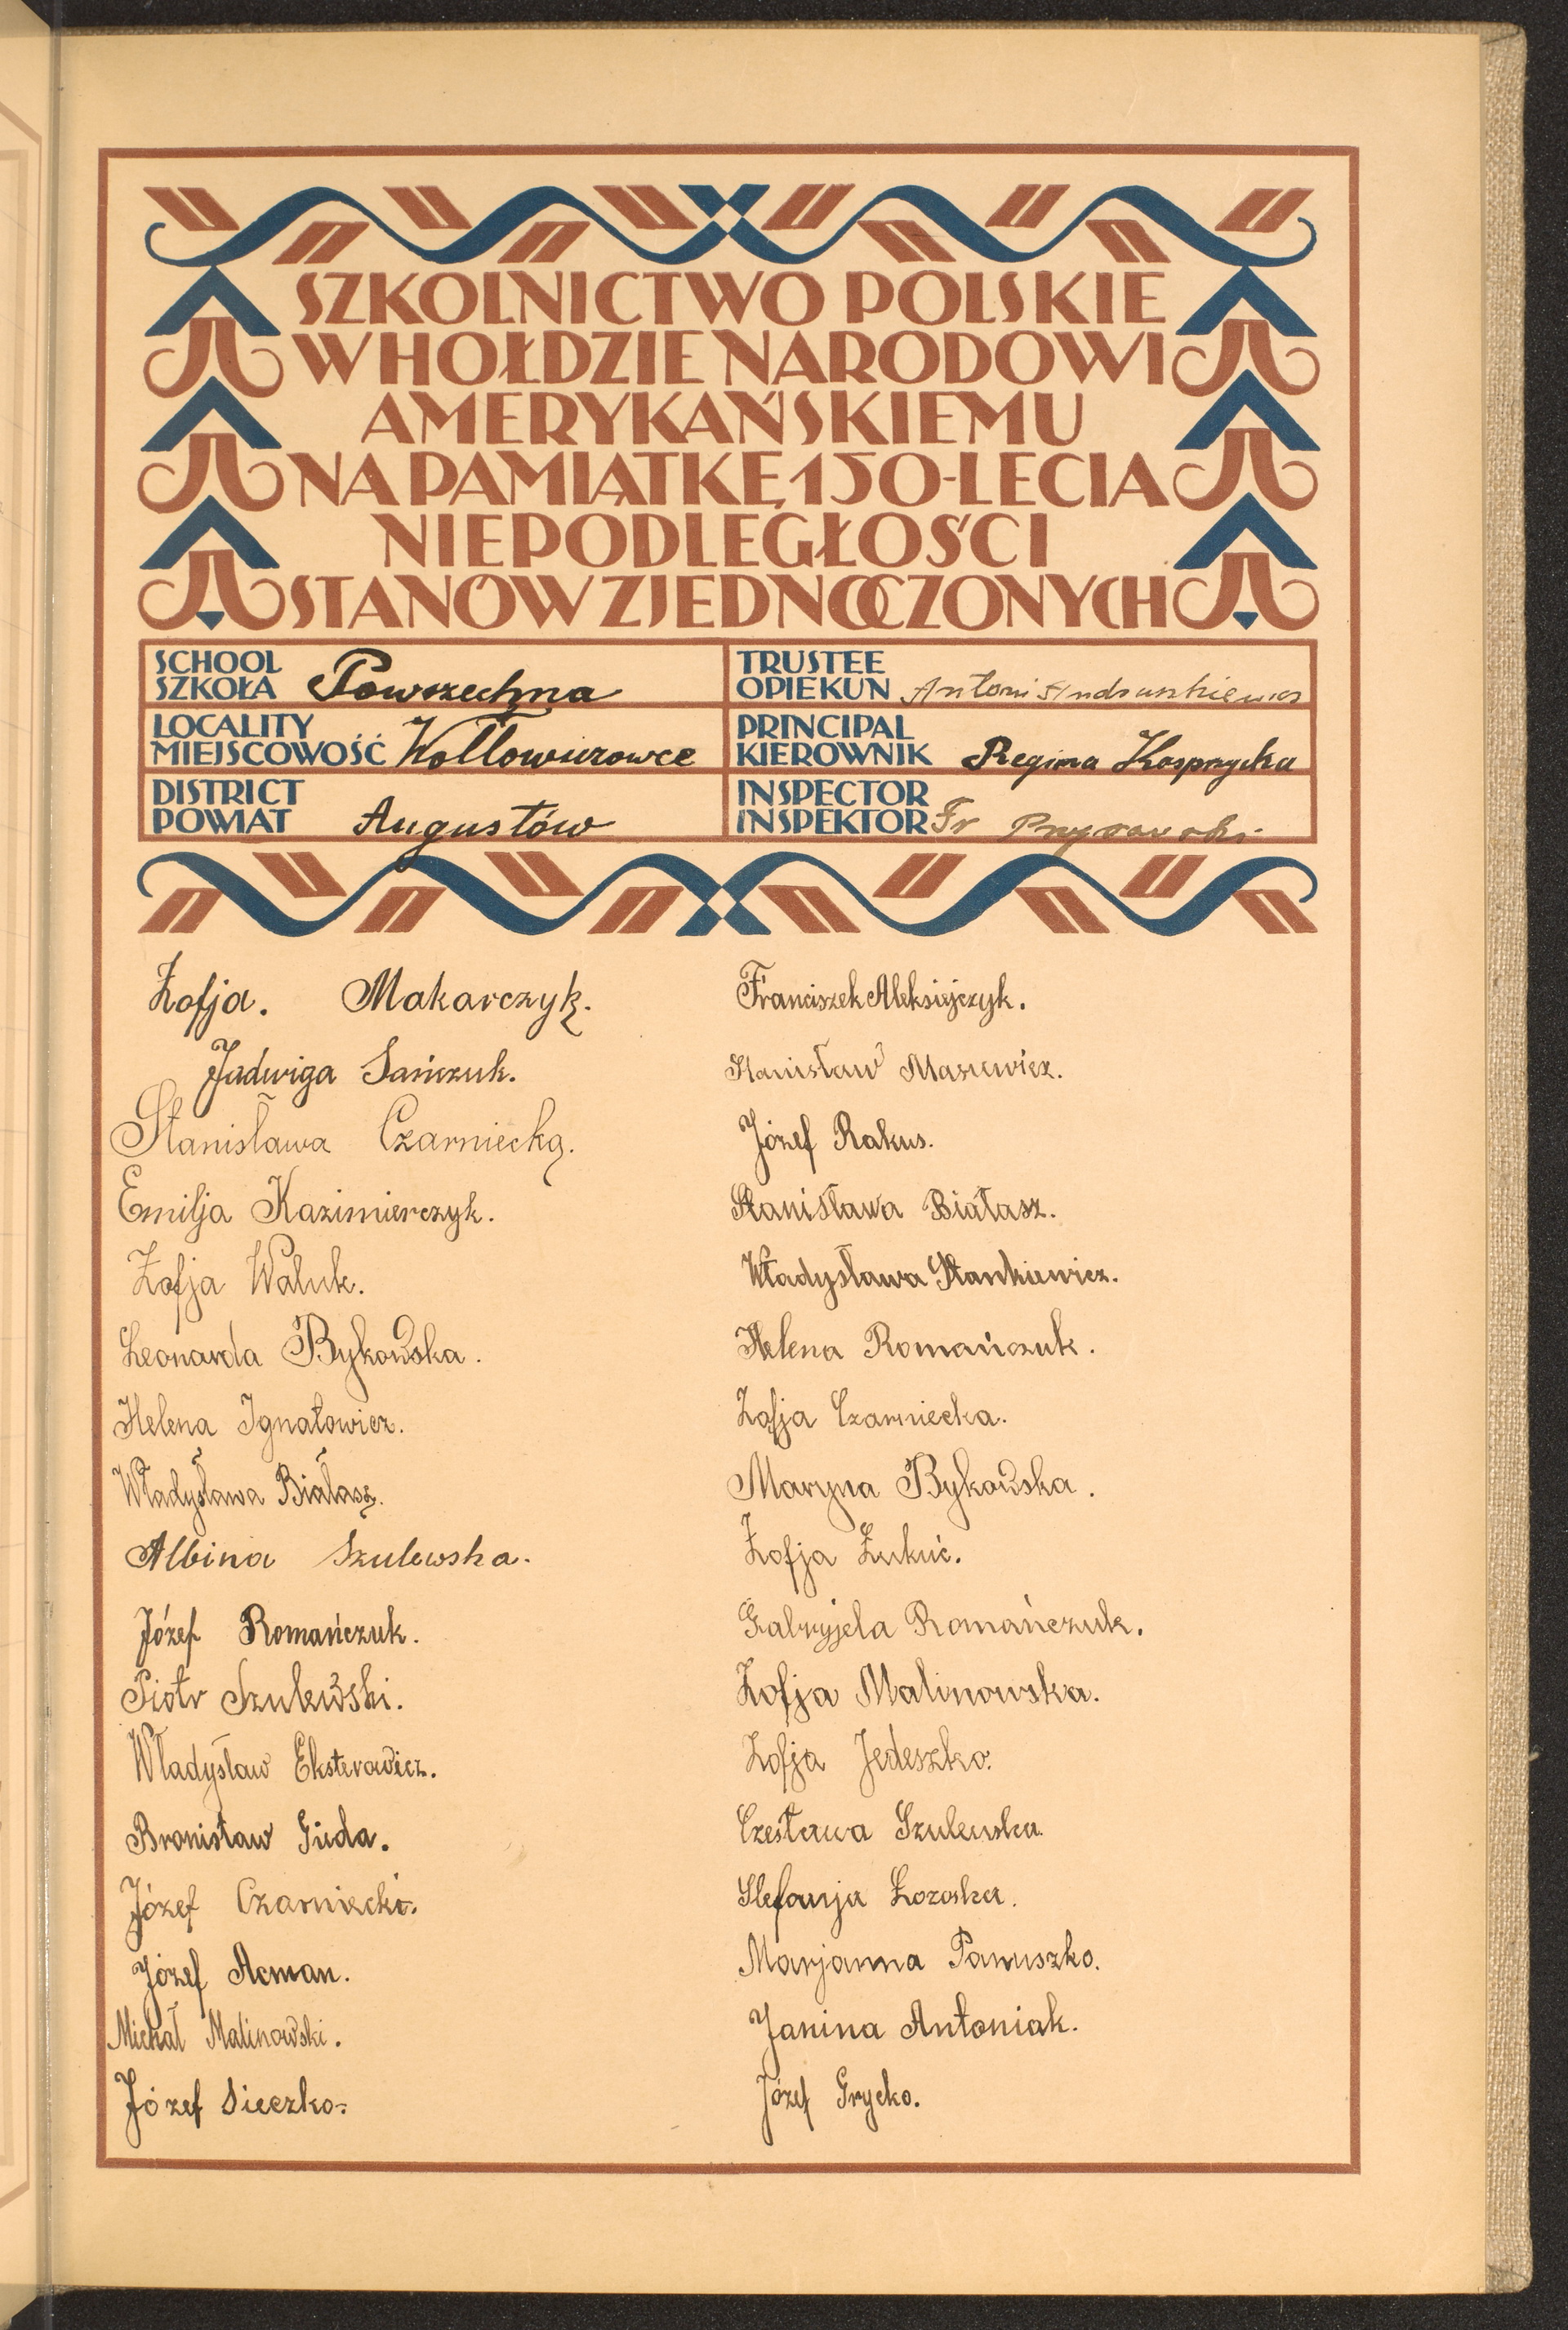 SZKOLNICTWO POLSKIE
W HOŁDZIE NARODOWI
AMERYKAŃSKIEMU
NA PAMIĄTKĘ 150-LECIA
NIEPODLEGŁOŚCI
STANÓW ZJEDNOCZONYCH
SCHOOL
SZKOŁA Powszechna
TRUSTEE
OPIEKUN Antoni Andruszkiewicz
LOCALITY
MIEJSCOWOŚĆ Wołłowiczowce
PRINCIPAL
KIEROWNIK Regina Kosprzycka
DISTRICT
POWIAT Augustów
INSPECTOR
INSPEKTOR Fr
Zofja. Makarczyk.
Jadwiga Sańczuk.
Stanisława Czarniecka.
Emilja Kazimierczyk.
Zofja Waluk.
Leonarda Bykowska.
Helena Ignatowicz.
Władysława Białasz.
Albina Szulewska.
Józef Romańczuk.
Piotr Szulewski.
Władysław Eksterowicz.
Bronisław Guda.
Józef Czarniecki.
Józef Acman.
Michał Malinowski.
Józef Sieczko.
Franciszek Aleksiejczyk.
Stanisław Masiewicz.
Józef Rakus.
Stanisława Białasz.
Władysława Stankiewicz.
Helena Romańczuk.
Zofja Czarniecka.
Maryna Bykowska.
Zofja Żukuć.
Gabryjela Romańczuk.
Zofja Malinowska.
Zofja Jedeszko.
Czesława Szulewska.
Stefanja Łozoska.
Marjanna Panuszko.
Janina Antoniak.
Józef Grycko.